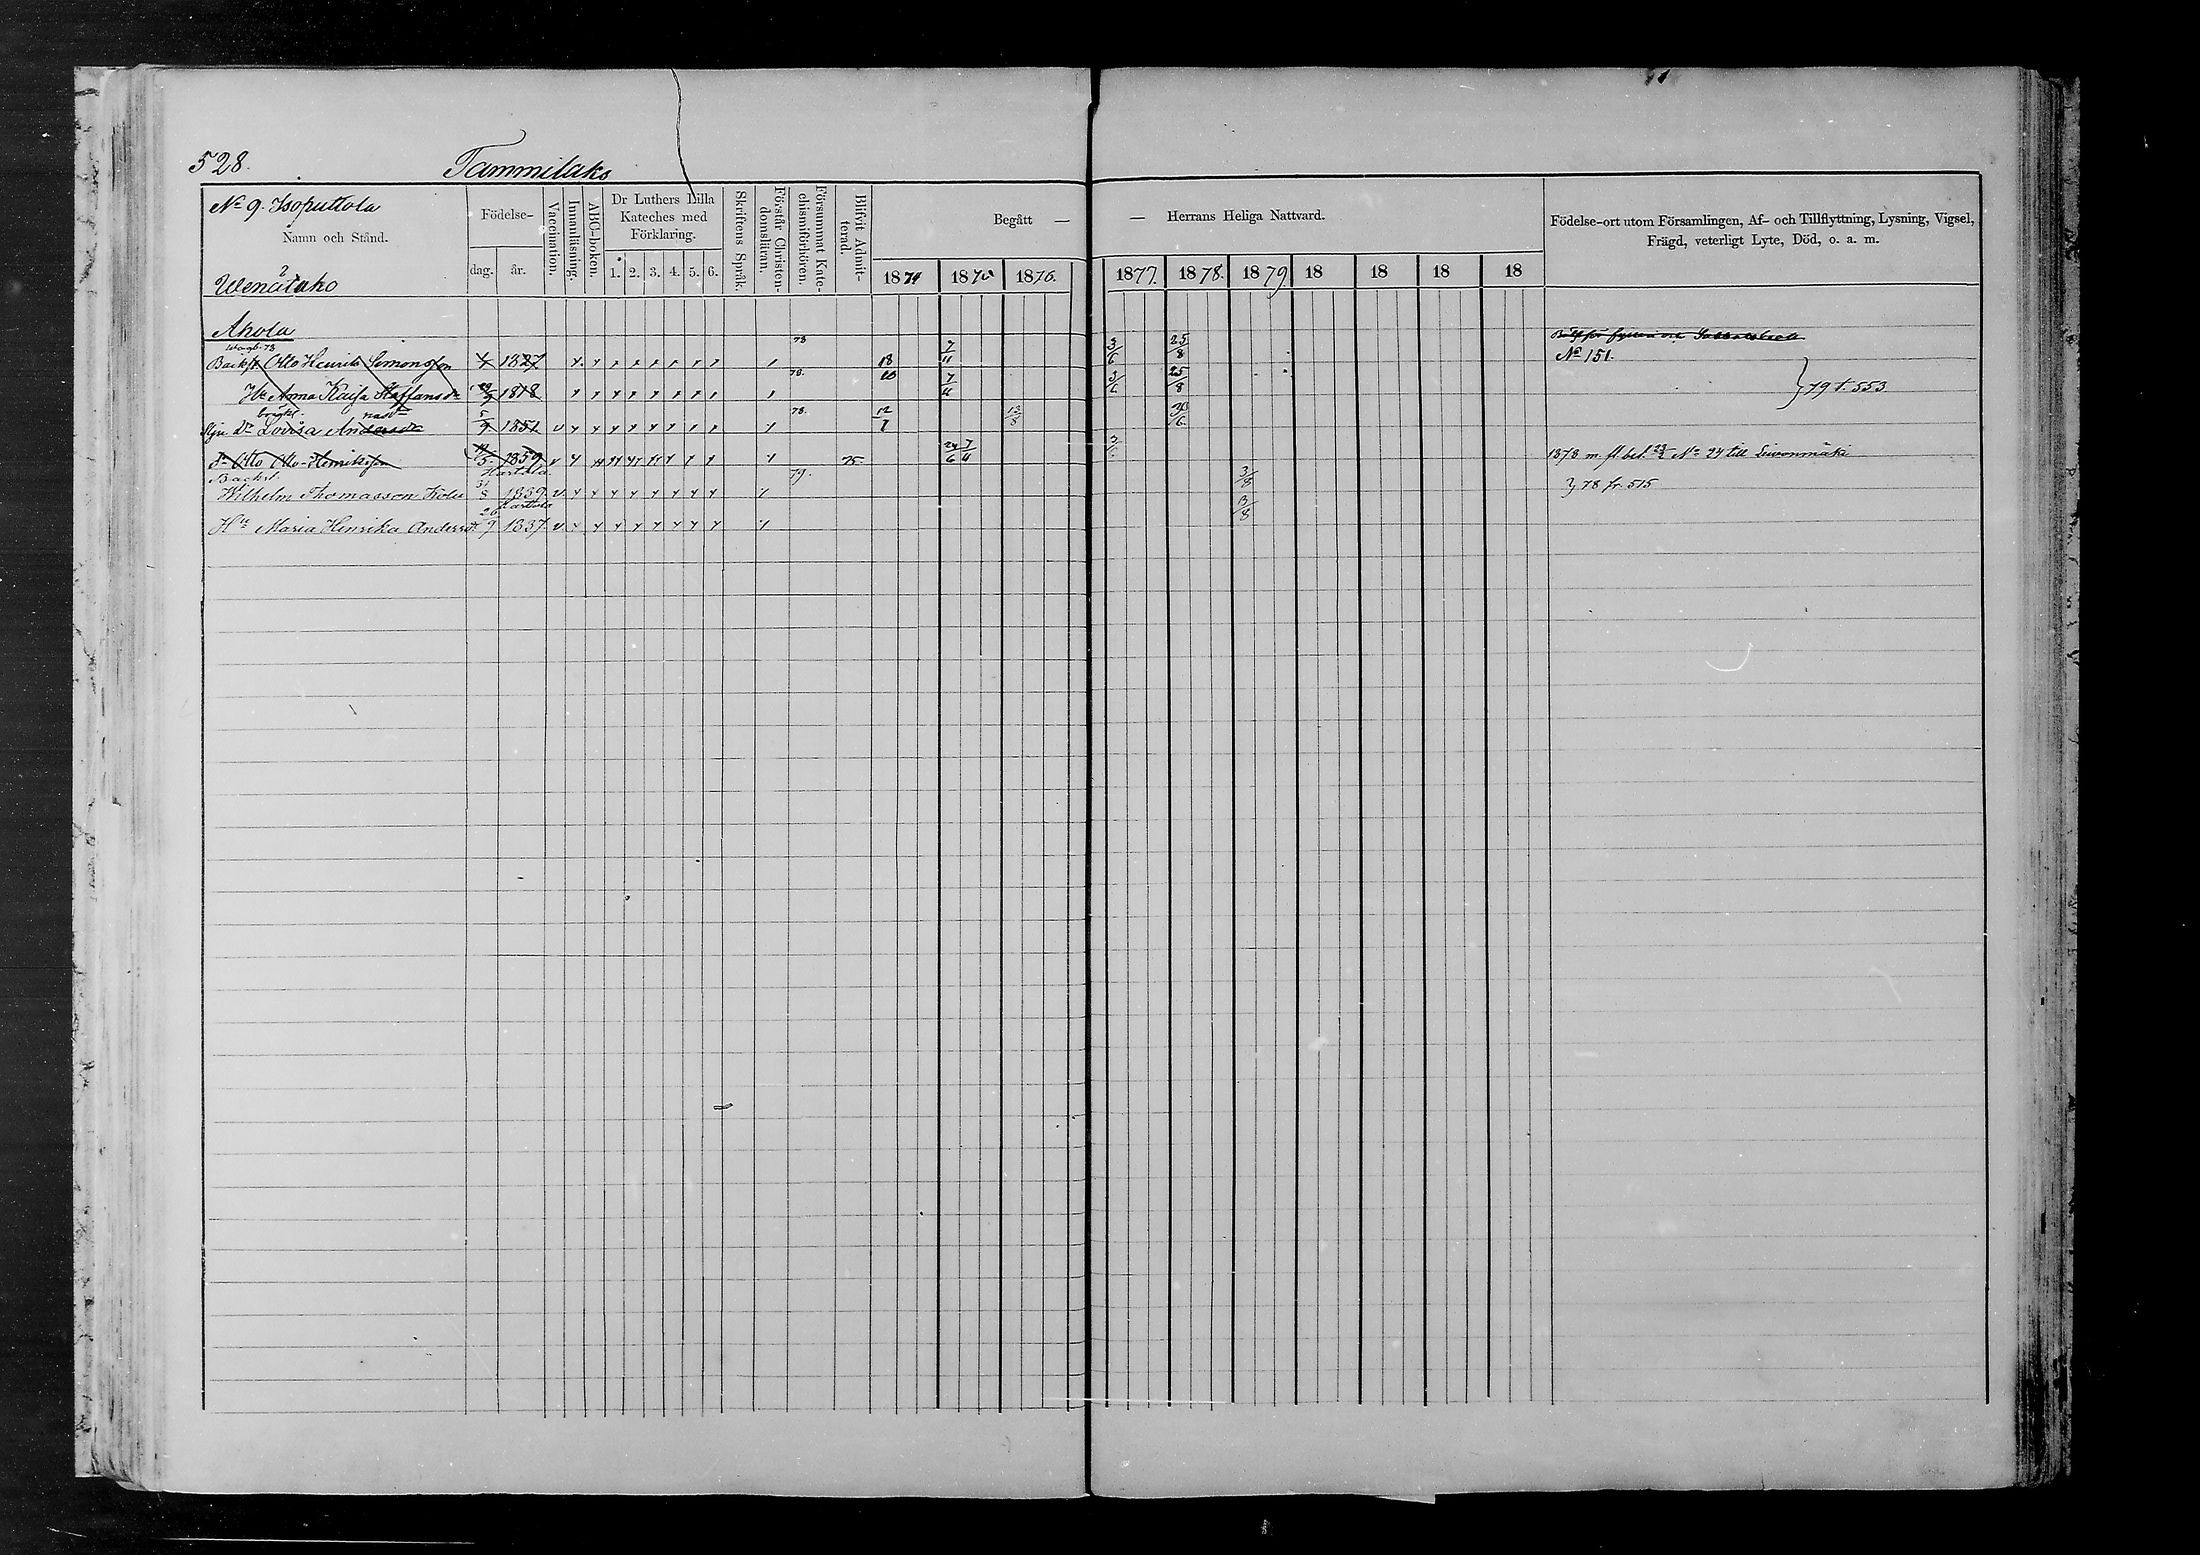 528. Tammilaks
No 9. Isoputtola
Namn och Stånd.
Födelse-
dag. år.
Vaccination.
Innanläsning.
ABC-boken.
Dr Luthers Lilla Kateches med Förklaring.
1. 2. 3. 4. 5. 6.
Skriftens Språk.
Förstår Christendomsläran.
Försummat Katechismiförhören.
Blifvit Admitterad.
Begått — — Herrans Heliga Nattvard.
1874 1875 1876. 1877. 1878. 1879. 18 18 18 18
Födelse-ort utom Församlingen, Af- och Tillflyttning, Lysning, Vigsel,
Frägd, veterligt Lyte, Död, o. a. m.
Ahola
Backst. Otto Henrik Simonsson 1827 73 18 7/11 3/6 25/8 No 151.
Hu Anna Kaisa Staffansdr 1818 78. 7/11 3/6 25/8 } 79 t. 553
Lovisa Andersdr 5/9 1851 78. 12/7 13/8
Sn Otto Otto Henriksson 1859 75. 7/11 1878 m. fl. bet. No 24 till Leivonmäki
Backst. Hartola
Wilhelm Thomasson 31/8 1839 79. 3/8 } 78 fr. 515
Hartola
Hu Maria Henrika Andersdr 26/9 1837 13/8